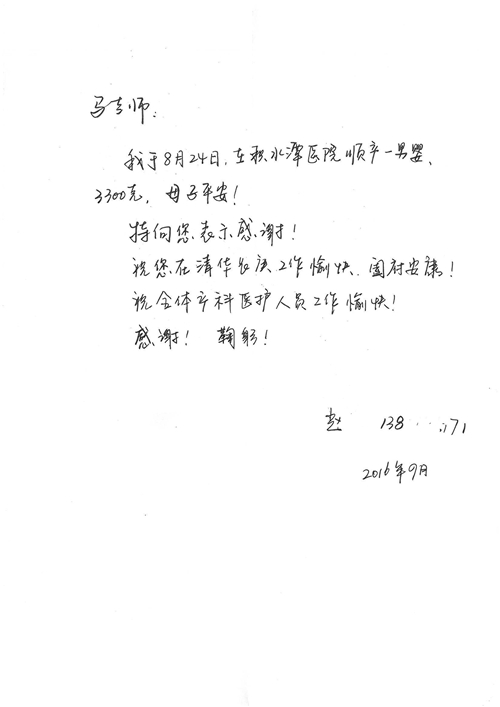 马老师：
我于8月24日，在积水潭医院顺产一男婴、
3300克，母子平安！
特向您表示感谢！
祝您在清华长庚工作愉快、阖府安康！
祝全体产科医护人员工作愉快！
感谢！ 鞠躬！
赵 138 171
2016年9月